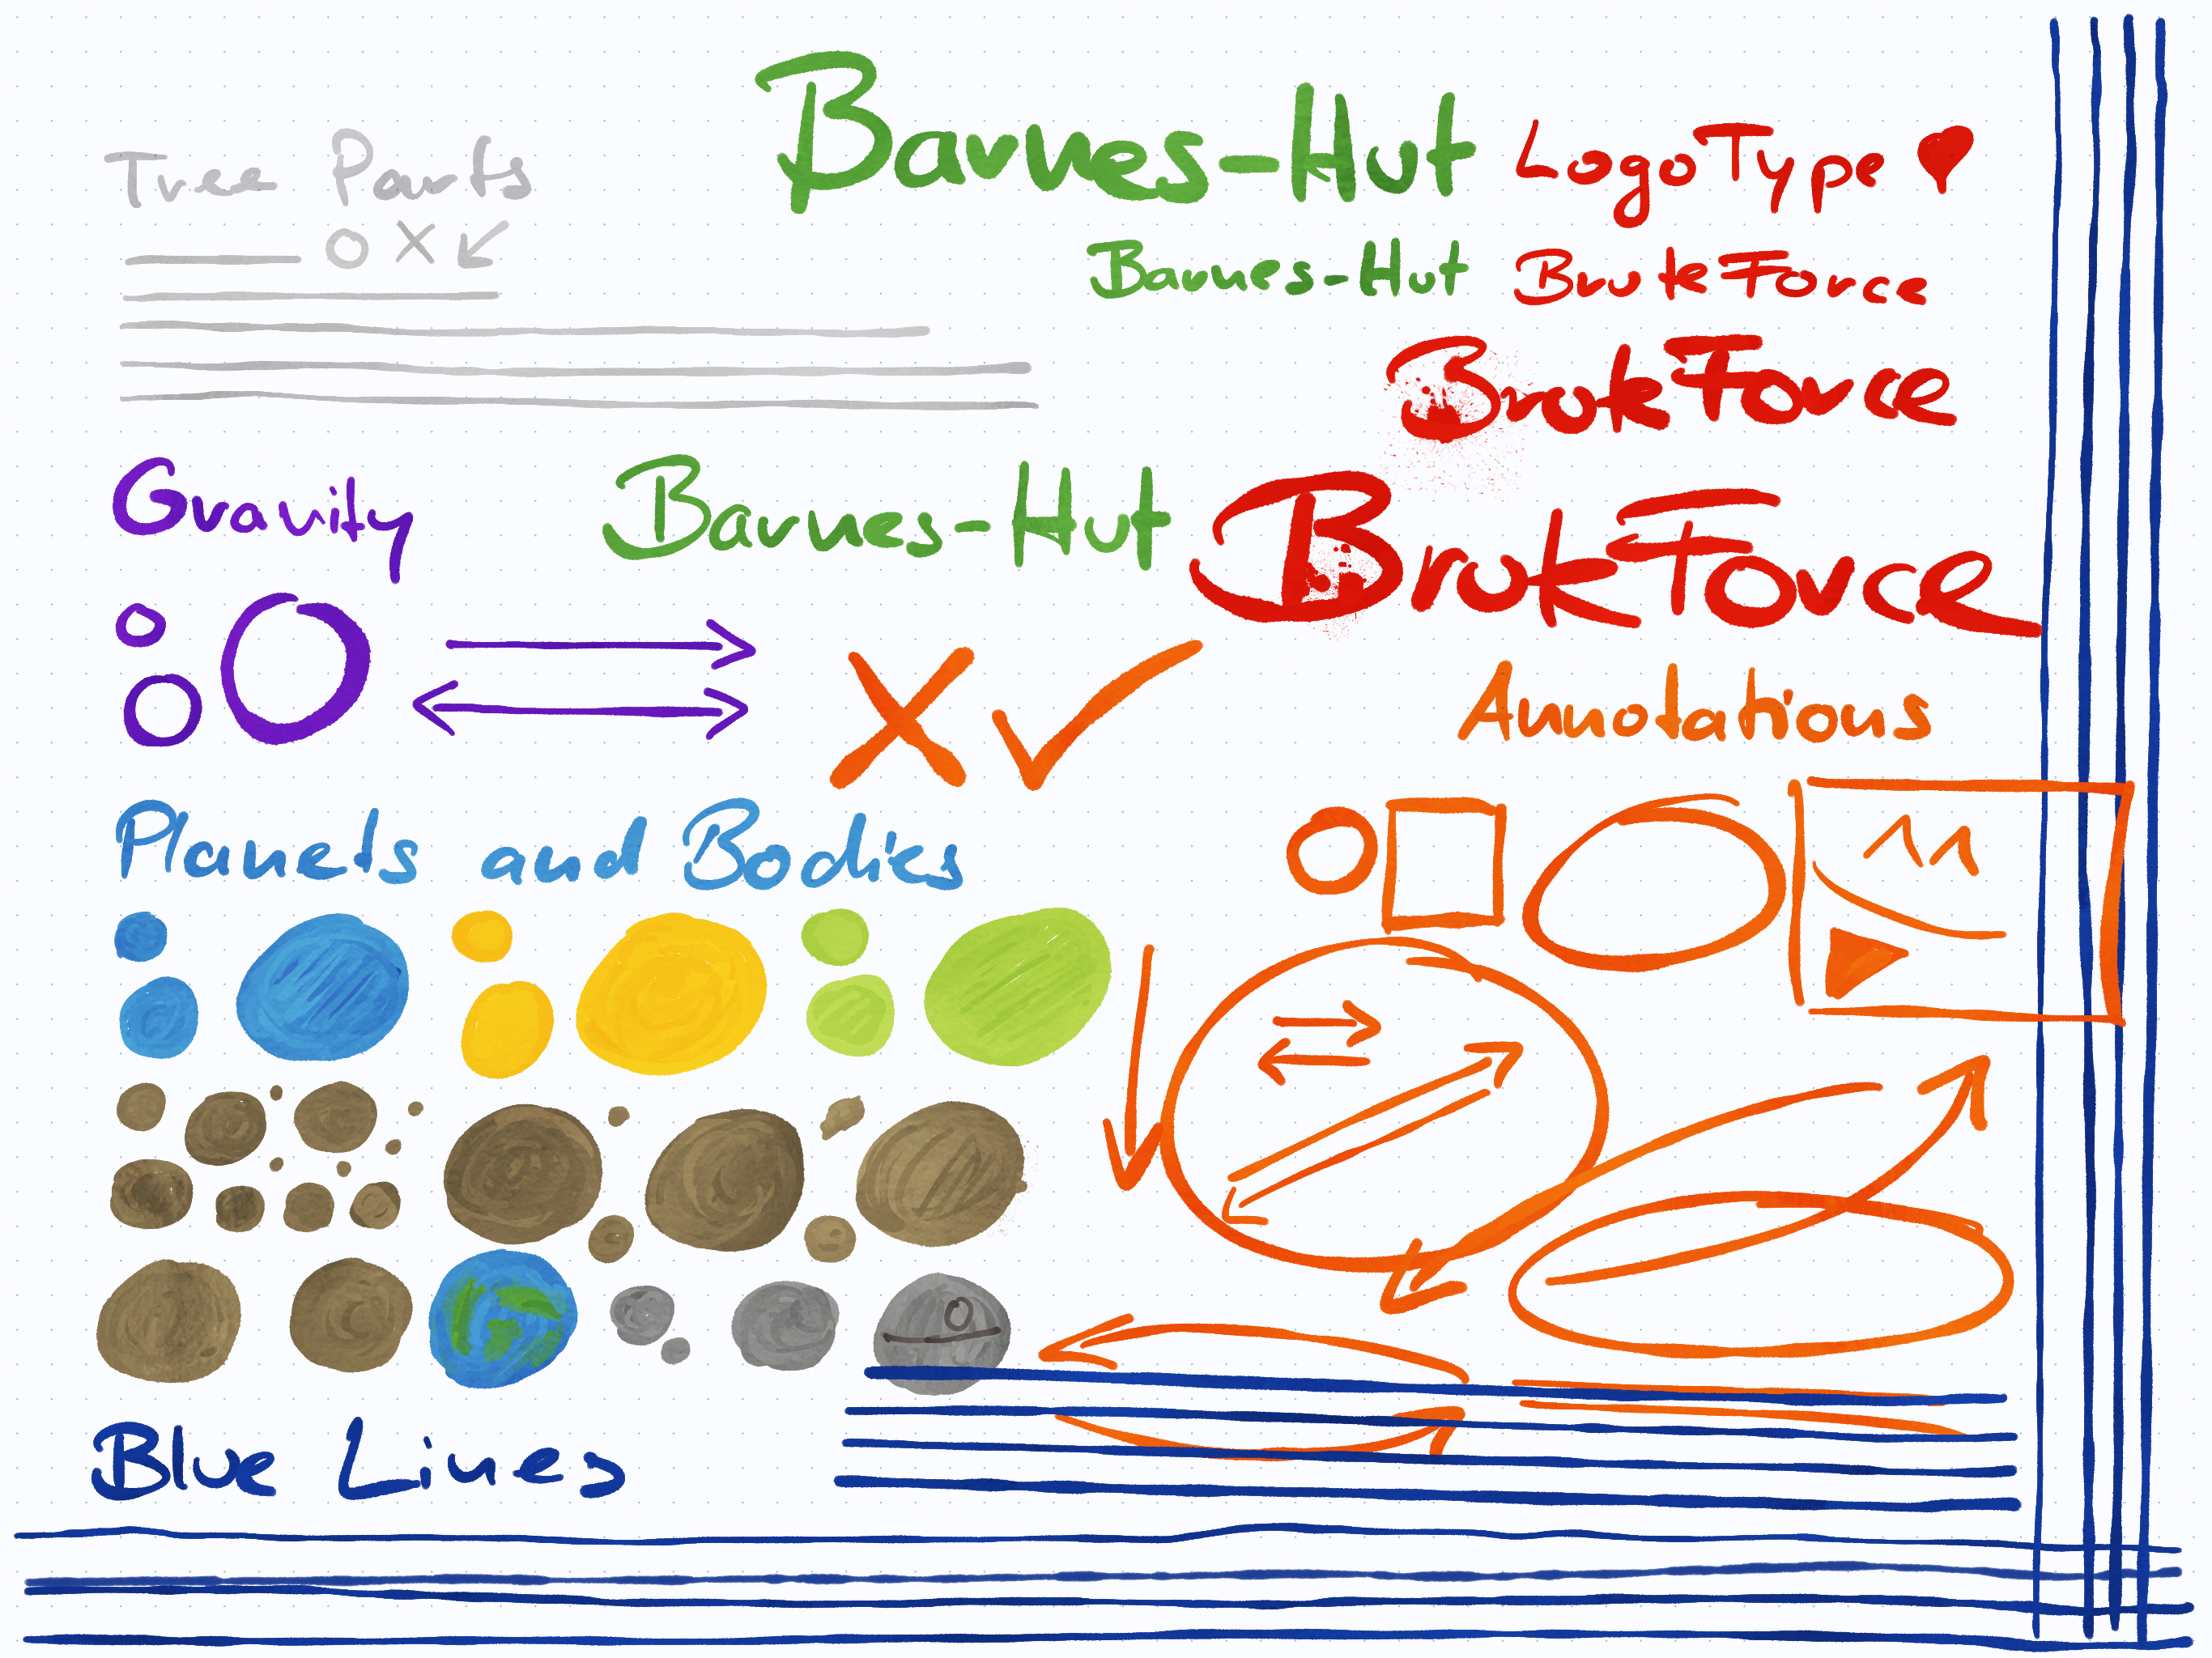 Tree Parts
Barnes-Hut
LogoType
Barnes-Hut
BruteForce
BruteForce
Gravity
Barnes-Hut
BruteForce
Annotations
Planets and Bodies
Blue Lines